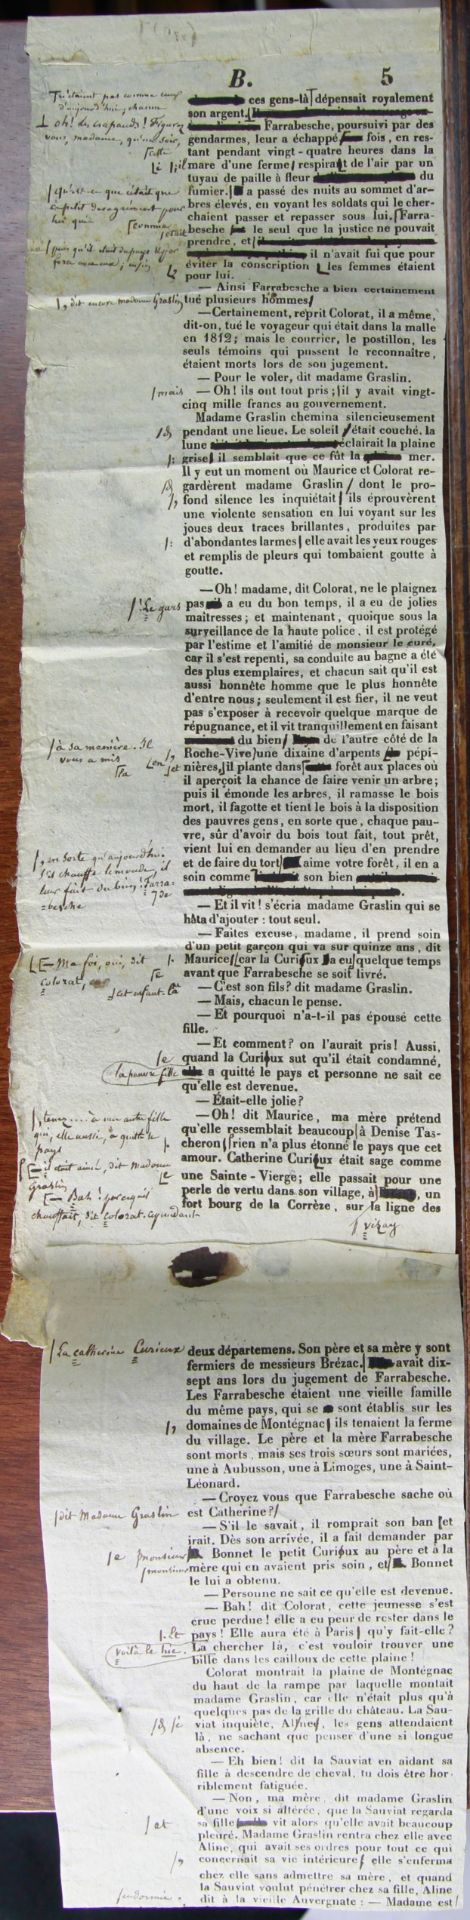 B. 5
ces gens-là dépensait royalement
son argent.
Farrabesche, poursuivi par des
gendarmes, leur a échappé fois, en res-
tant pendant vingt-quatre heures dans la
mare d'une ferme, respirant de l'air par un
tuyau de paille à fleur du
fumier. a passé des nuits au sommet d'ar-
bres élevés, en voyant les soldats qui le cher-
chaient passer et repasser sous lui. Farra-
besche le seul que la justice ne pouvait
prendre, et
il n'avait fui que pour
éviter la conscription les femmes étaient
pour lui.
— Ainsi Farrabesche a bien certainement
tué plusieurs hommes
dit encore madame Graslin
— Certainement, reprit Colorat, il a même,
dit-on, tué le voyageur qui était dans la malle
en 1812; mais le courrier, le postillon, les
seuls témoins qui pussent le reconnaître,
étaient morts lors de son jugement.
— Pour le voler, dit madame Graslin.
mais
— Oh! ils ont tout pris; il y avait vingt-
cinq mille francs au gouvernement.
Madame Graslin chemina silencieusement
pendant une lieue. Le soleil était couché, la
lune éclairait la plaine
grise il semblait que ce fût la mer.
Il y eut un moment où Maurice et Colorat re-
gardèrent madame Graslin dont le pro-
fond silence les inquiétait ils éprouvèrent
une violente sensation en lui voyant sur les
joues deux traces brillantes, produites par
d'abondantes larmes elle avait les yeux rouges
et remplis de pleurs qui tombaient goutte à
goutte.
— Oh! madame, dit Colorat, ne le plaignez
Le gars
pas a eu du bon temps, il a eu de jolies
maîtresses; et maintenant, quoique sous la
surveillance de la haute police, il est protégé
par l'estime et l'amitié de monsieur le curé,
car il s'est repenti, sa conduite au bagne a été
des plus exemplaires, et chacun sait qu'il est
aussi honnête homme que le plus honnête
d'entre nous; seulement il est fier, il ne veut
pas s'exposer à recevoir quelque marque de
répugnance, et il vit tranquillement en faisant
à sa manière. Il
vous a mis
du bien de l'autre côté de la
Roche-Vive une dixaine d'arpents en pépi-
nières, il plante dans forêt aux places où
il aperçoit la chance de faire venir un arbre;
puis il émonde les arbres, il ramasse le bois
mort, il fagotte et tient le bois à la disposition
des pauvres gens, en sorte que, chaque pau-
vre, sûr d'avoir du bois tout fait, tout prêt,
vient lui en demander au lieu d'en prendre
et de faire du tort aime votre forêt, il en a
soin comme son bien
en sorte qu'aujourd'hui
s'il chauffe le monde, il
leur fait du bien! Farra-
besche
— Et il vit! s'écria madame Graslin qui se
hâta d'ajouter : tout seul.
— Faites excuse, madame, il prend soin
d'un petit garçon qui va sur quinze ans, dit
Maurice car la Curieux a eu quelque temps
avant que Farrabesche se soit livré.
Ma foi, oui, dit
colorat,
cet enfant-là
— C'est son fils? dit madame Graslin.
— Mais, chacun le pense.
— Et pourquoi n'a-t-il pas épousé cette
fille.
— Et comment? on l'aurait pris! Aussi,
quand la Curieux sut qu'il était condamné,
la pauvre fille
a quitté le pays et personne ne sait ce
qu'elle est devenue.
— Était-elle jolie?
— Oh! dit Maurice, ma mère prétend
qu'elle ressemblait beaucoup à Denise Tas-
cheron rien n'a plus étonné le pays que cet
amour. Catherine Curieux était sage comme
une Sainte-Vierge; elle passait pour une
perle de vertu dans son village, à , un
fort bourg de la Corrèze, sur la ligne des
tenez.... à une autre fille
qui, elle aussi, a quitté le
pays
il était aimé, dit Madame
Graslin
Bah! parcequ'il
chauffait, dit colorat
Vizay
La catherine Curieux
deux départemens. Son père et sa mère y sont
fermiers de messieurs Brézac. avait dix-
sept ans lors du jugement de Farrabesche.
Les Farrabesche étaient une vieille famille
du même pays, qui se sont établis sur les
domaines de Montégnac ils tenaient la ferme
du village. Le père et la mère Farrabesche
sont morts, mais ses trois sœurs sont mariées,
une à Aubusson, une à Limoges, une à Saint-
Léonard.
— Croyez vous que Farrabesche sache où
est Catherine?
dit Madame Graslin
— S'il le savait, il romprait son ban et
irait. Dès son arrivée, il a fait demander par
monsieur
Bonnet le petit Curieux au père et à la
monsieur
mère qui en avaient pris soin, et Bonnet
le lui a obtenu.
— Personne ne sait ce qu'elle est devenue.
— Bah! dit Colorat, cette jeunesse s'est
crue perdue! elle a eu peur de rester dans le
pays! Elle aura été à Paris qu'y fait-elle?
Et
voilà le hic.
La chercher là, c'est vouloir trouver une
bille dans les cailloux de cette plaine!
Colorat montrait la plaine de Montégnac
du haut de la rampe par laquelle montait
madame Graslin, car elle n'était plus qu'à
quelques pas de la grille du château. La Sau-
viat inquiète, Aline, les gens attendaient
là, ne sachant que penser d'une si longue
absence.
— Eh bien! dit la Sauviat en aidant sa
fille à descendre de cheval, tu dois être hor-
riblement fatiguée.
— Non, ma mère, dit madame Graslin
d'une voix si altérée, que la Sauviat regarda
et
sa fille vit alors qu'elle avait beaucoup
pleuré. Madame Graslin rentra chez elle avec
Aline, qui avait ses ordres pour tout ce qui
concernait sa vie intérieure elle s'enferma
chez elle sans admettre sa mère, et quand
la Sauviat voulut pénétrer chez sa fille, Aline
dit à la vieille Auvergnate : — Madame est
endormie.